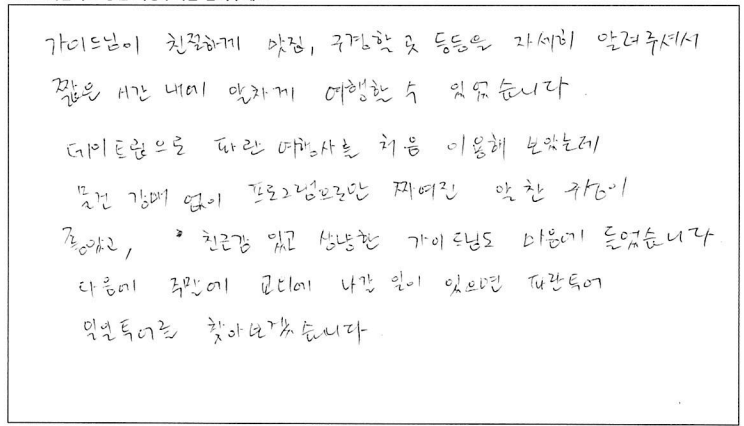 가이드님이 친절하게 맛집, 구경할 곳 등등을 자세히 알려주셔서
짧은 시간 내에 알차게 여행할 수 있었습니다.
데이트립으로 파란 여행사를 처음 이용해 보았는데
물건 강매 없이 프로그램으로만 짜여진 알찬 구성이
좋았고, 친근감 있고 상냥한 가이드님도 마음에 들었습니다
다음에 주말에 교외에 나갈 일이 있으면 파란투어
일일투어를 찾아보겠습니다.